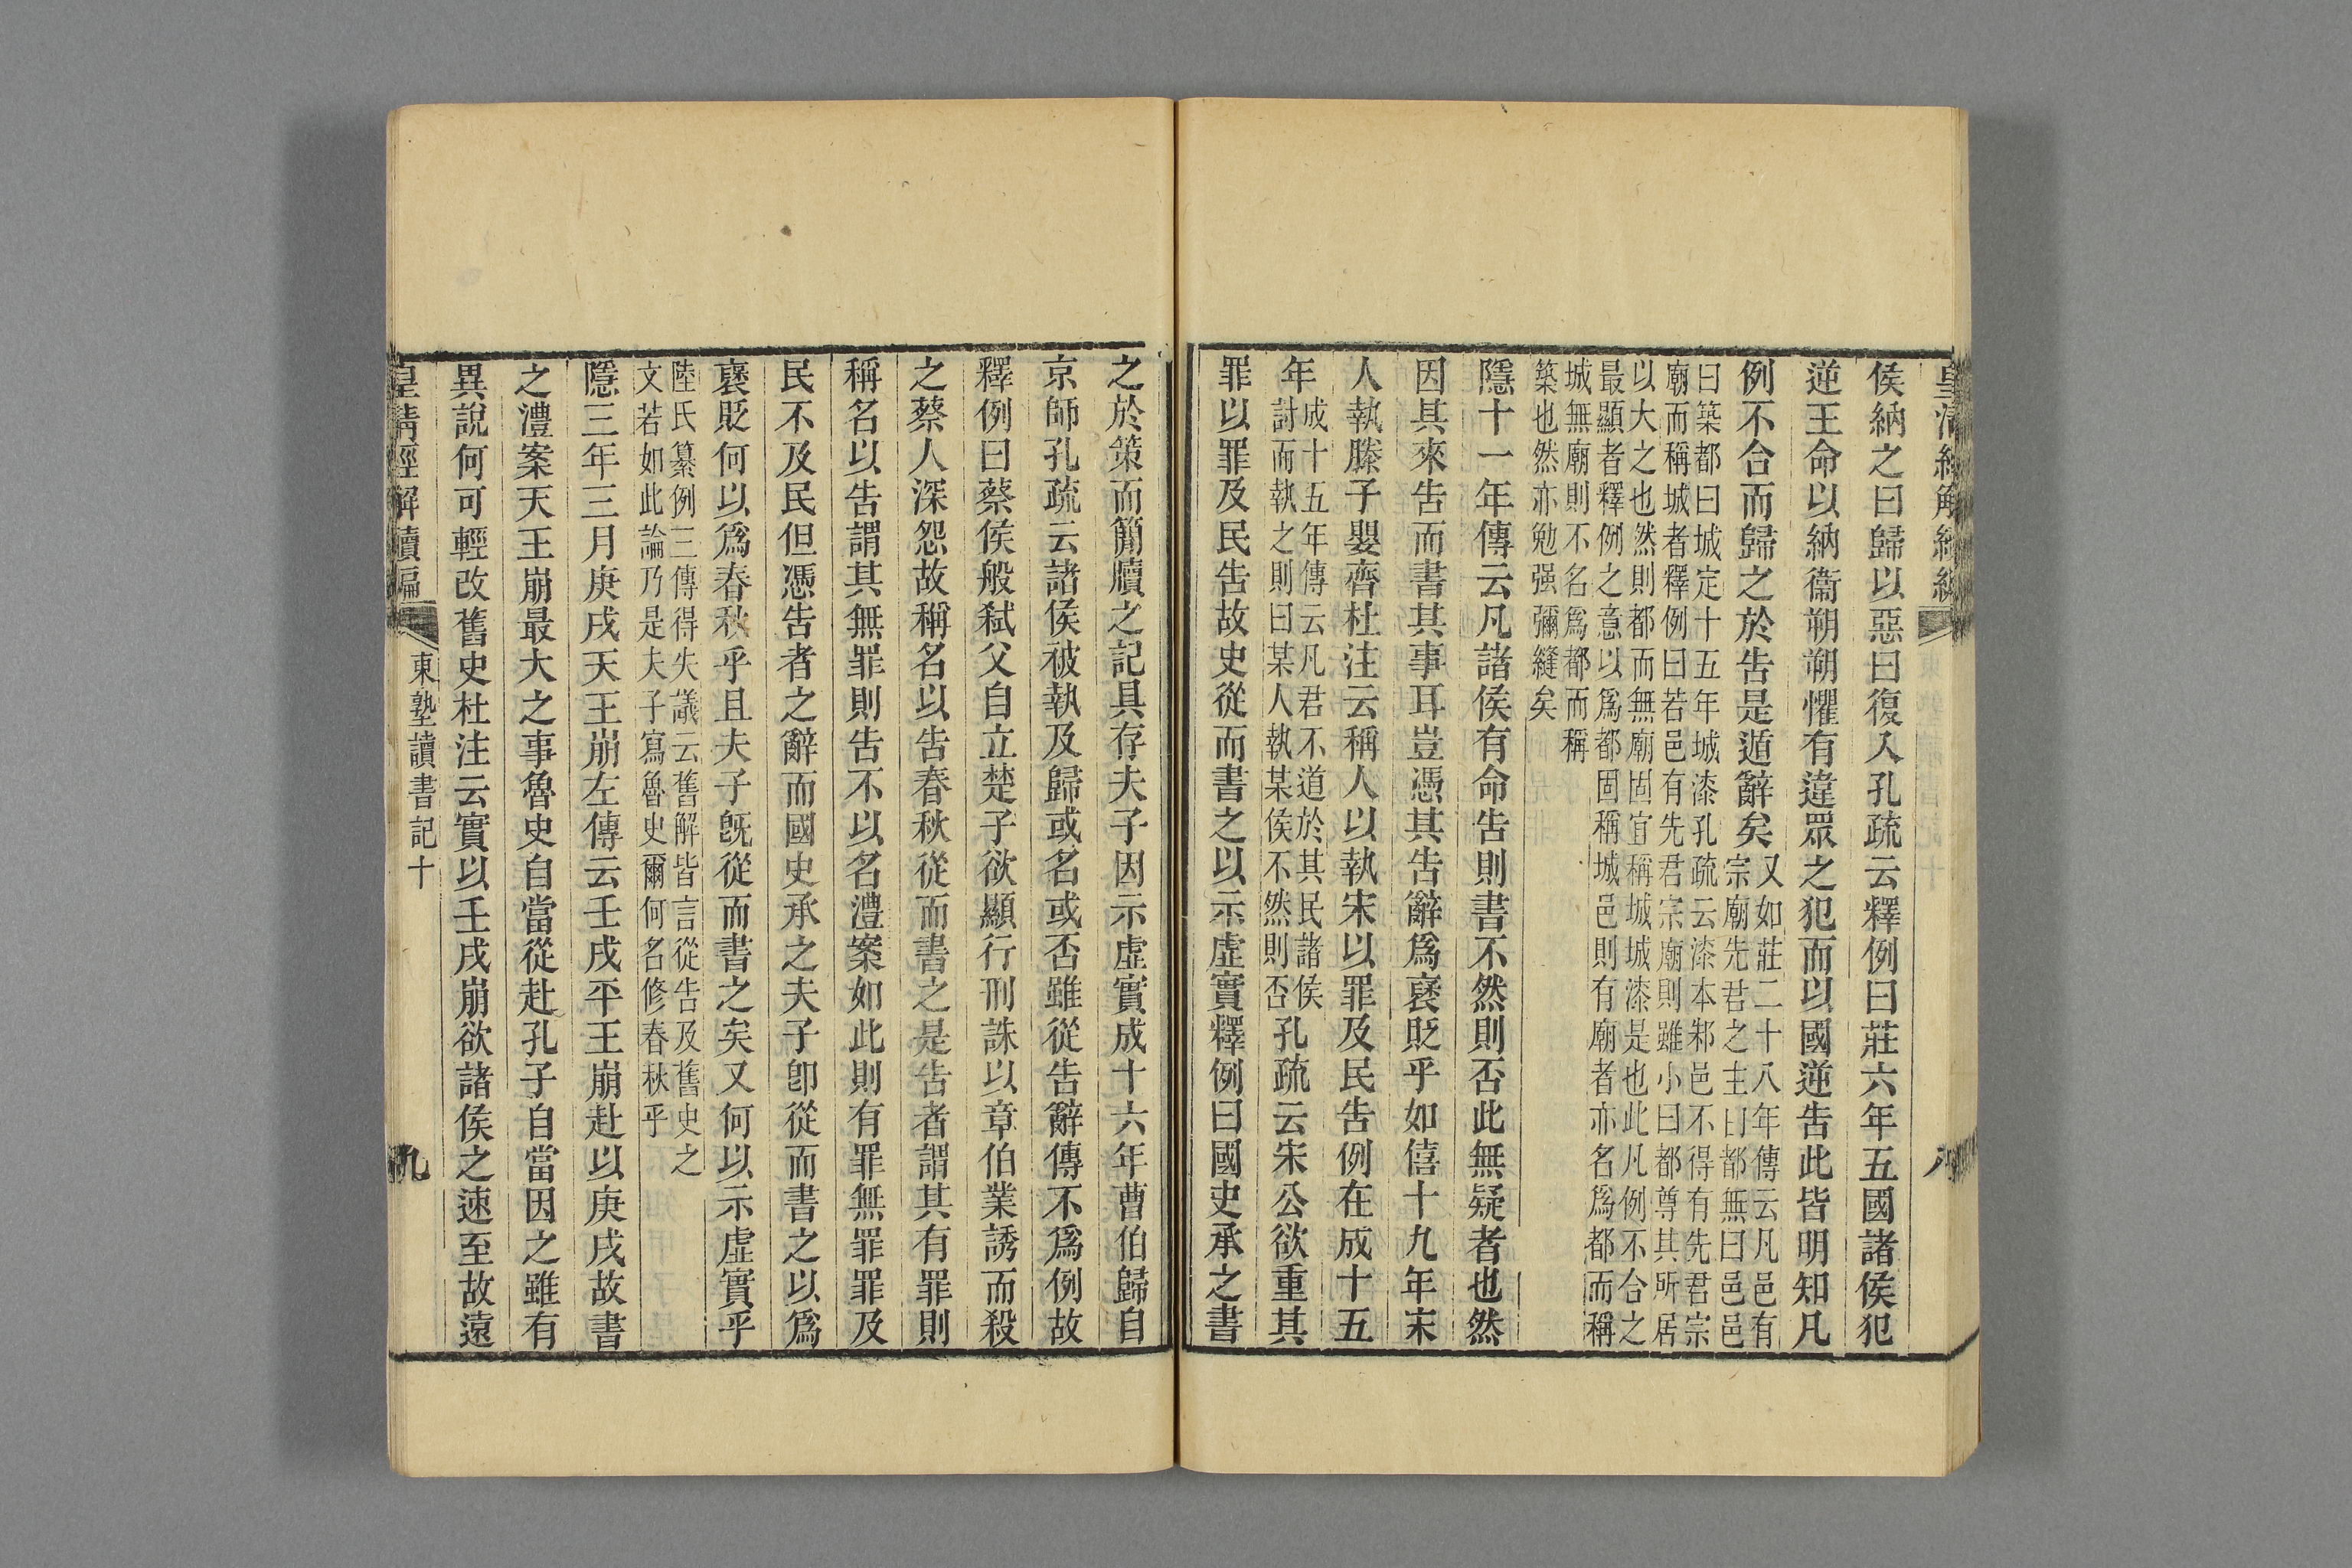 皇清經解續編
八
侯納之曰歸以惡曰復入孔疏云釋例曰莊六年五國諸侯犯
逆王命以納衞朔朔懼有違眾之犯而以國逆告此皆明知凡
例不合而歸之於告是遁辭矣
又如莊二十八年傳云凡邑有
宗廟先君之主曰都無曰邑邑
曰築都曰城定十五年城漆孔疏云漆本邾邑不得有先君宗
廟而稱城者釋例曰若邑有先君宗廟則雖小曰都尊其所居
以大之也然則都而無廟固宜稱城城漆是也此凡例不合之
最顯者釋例之意以爲都固稱城邑則有廟者亦名爲都而稱
城無廟則不名爲都而稱
築也然亦勉强彌縫矣
隱十一年傳云凡諸侯有命告則書不然則否此無疑者也然
因其來告而書其事耳豈憑其告辭爲褒貶乎如僖十九年宋
人執滕子嬰齊杜注云稱人以執宋以罪及民告例在成十五
年
成十五年傳云凡君不道於其民諸侯
討而執之則曰某人執某侯不然則否
孔疏云宋公欲重其
罪以罪及民告故史從而書之以示虛實釋例曰國史承之書
之於策而簡牘之記具存夫子因示虛實成十六年曹伯歸自
京師孔疏云諸侯被執及歸或名或否雖從告辭傳不爲例故
釋例曰蔡侯般弒父自立楚子欲顯行刑誅以章伯業誘而殺
之蔡人深怨故稱名以告春秋從而書之是告者謂其有罪則
稱名以告謂其無罪則告不以名澧案如此則有罪無罪罪及
民不及民但憑告者之辭而國史承之夫子卽從而書之以爲
褒貶何以爲春秋乎且夫子旣從而書之矣又何以示虛實乎
陸氏纂例三傳得失議云舊解皆言從告及舊史之
文若如此論乃是夫子寫魯史爾何名修春秋乎
隱三年三月庚戌天王崩左傳云壬戌平王崩赴以庚戌故書
之澧案天王崩最大之事魯史自當從赴孔子自當因之雖有
異說何可輕改舊史杜注云實以壬戌崩欲諸侯之速至故遠
皇清經解續編
東塾讀書記十
九